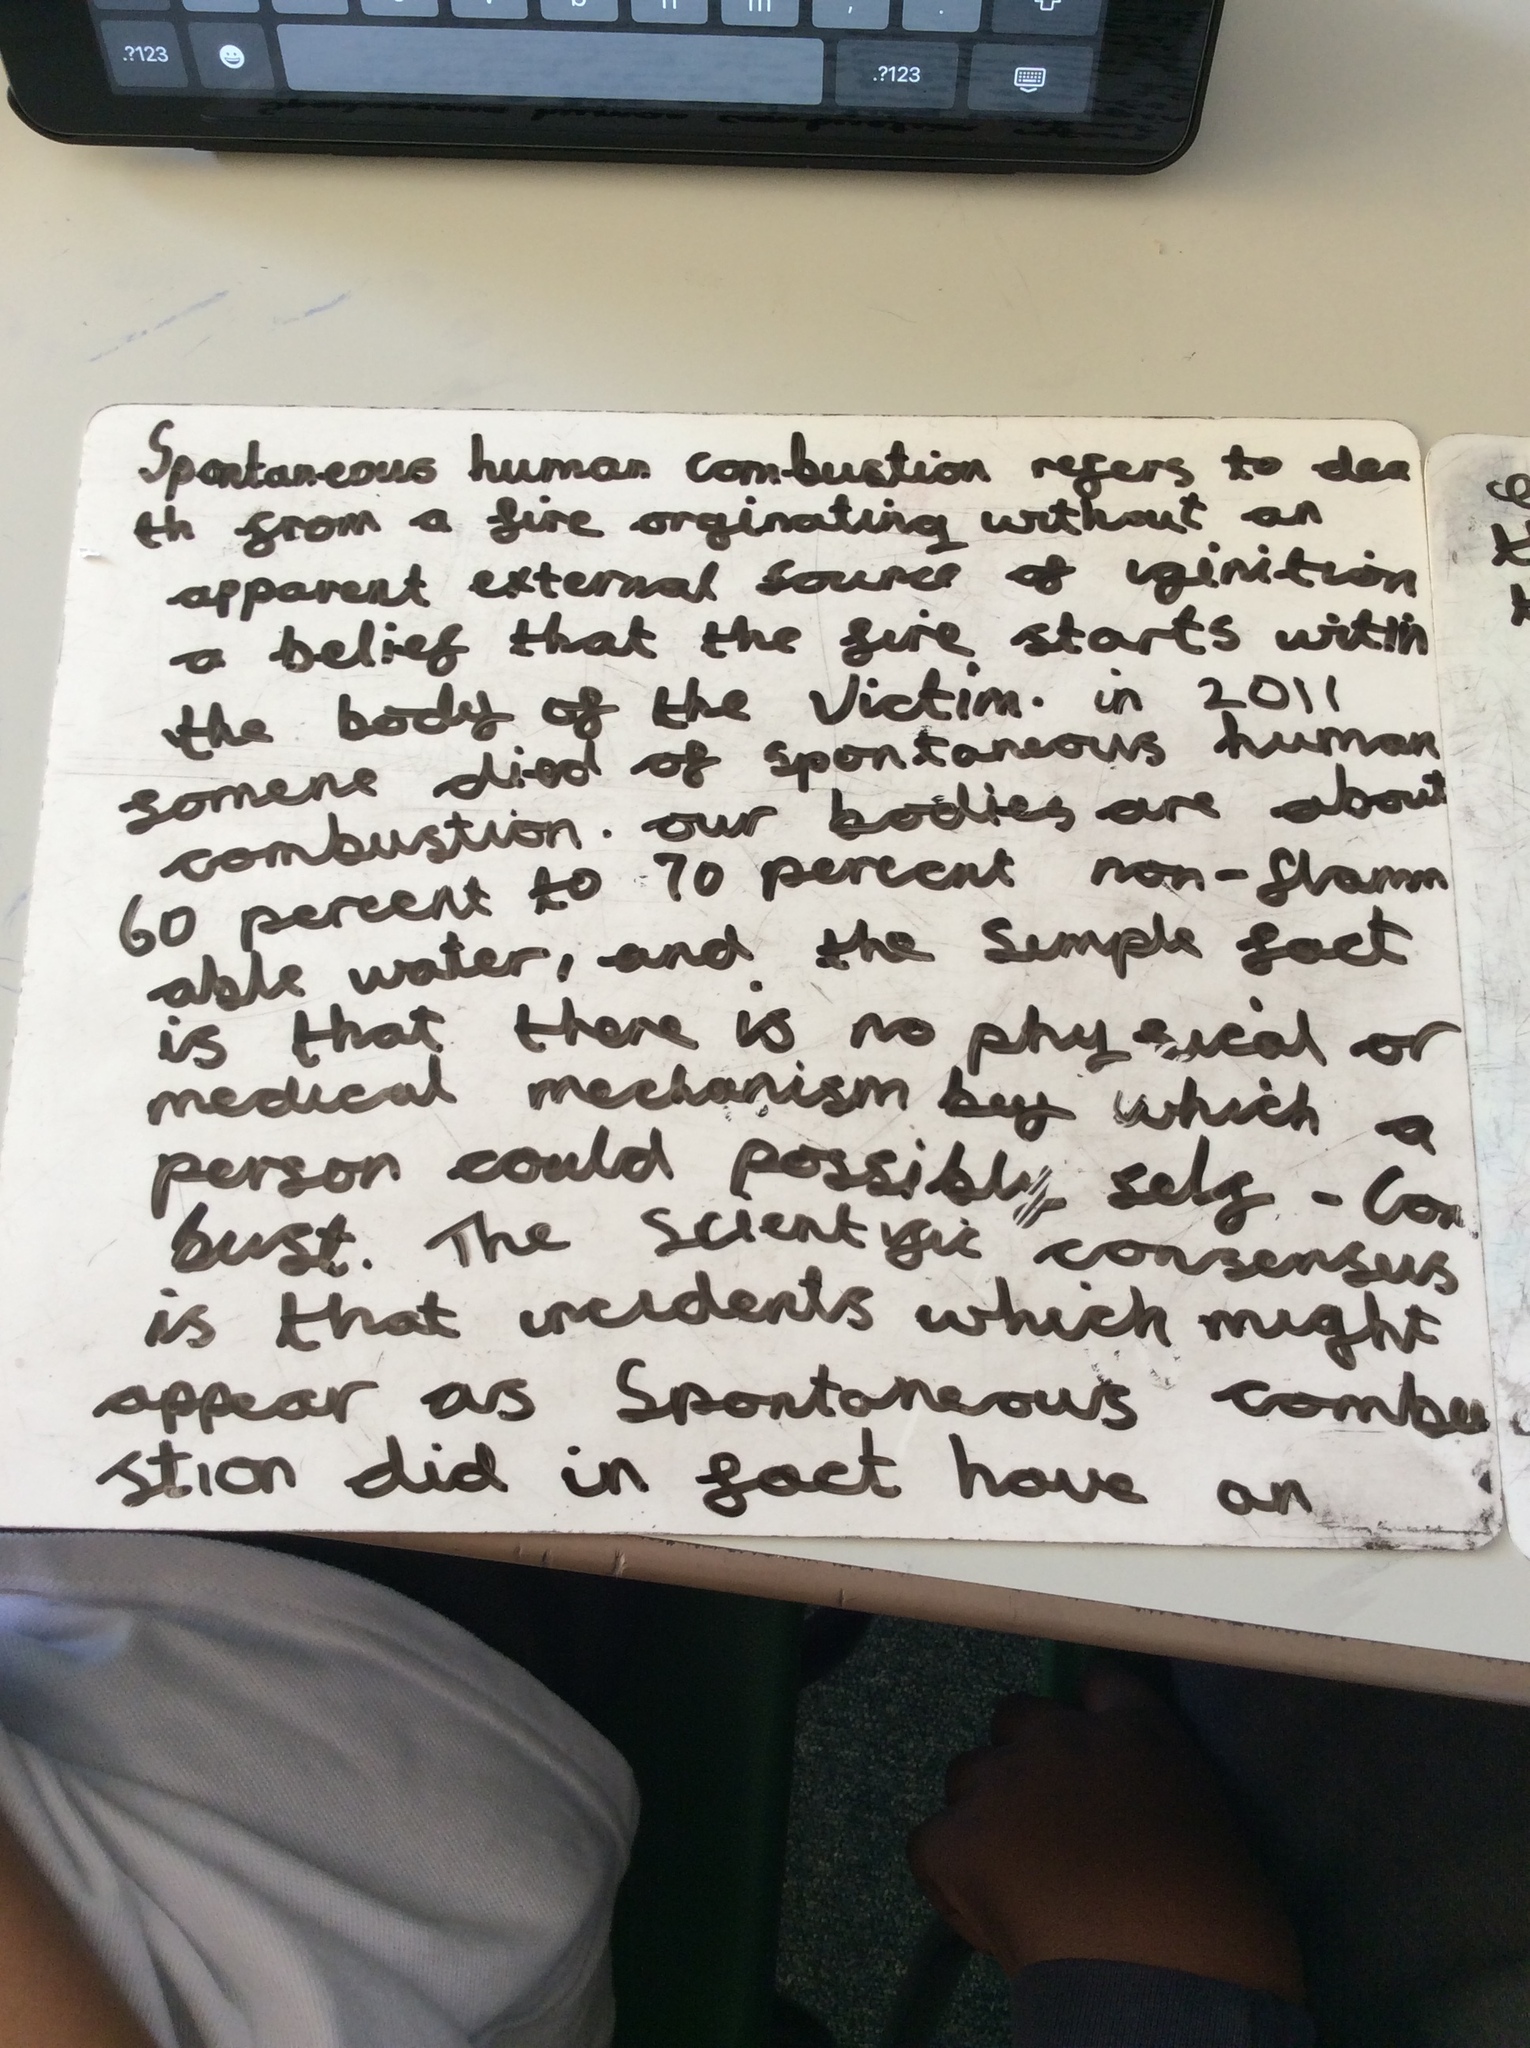 .?123
.?123
Spontaneous human combustion refers to dea
th from a fire orginating without an
apparent external source of iginition
a belief that the fire starts within
the body of the victim. in 2011
somene died of spontaneous human
combustion. our bodies are about
60 percent to 70 percent non-flamm
able water, and the simple fact
is that there is no physical or
medical mechanism by which a
person could possibly self - Com
bust. The scientific consensus
is that incidents which might
appear as Spontaneous combu
stion did in fact have an